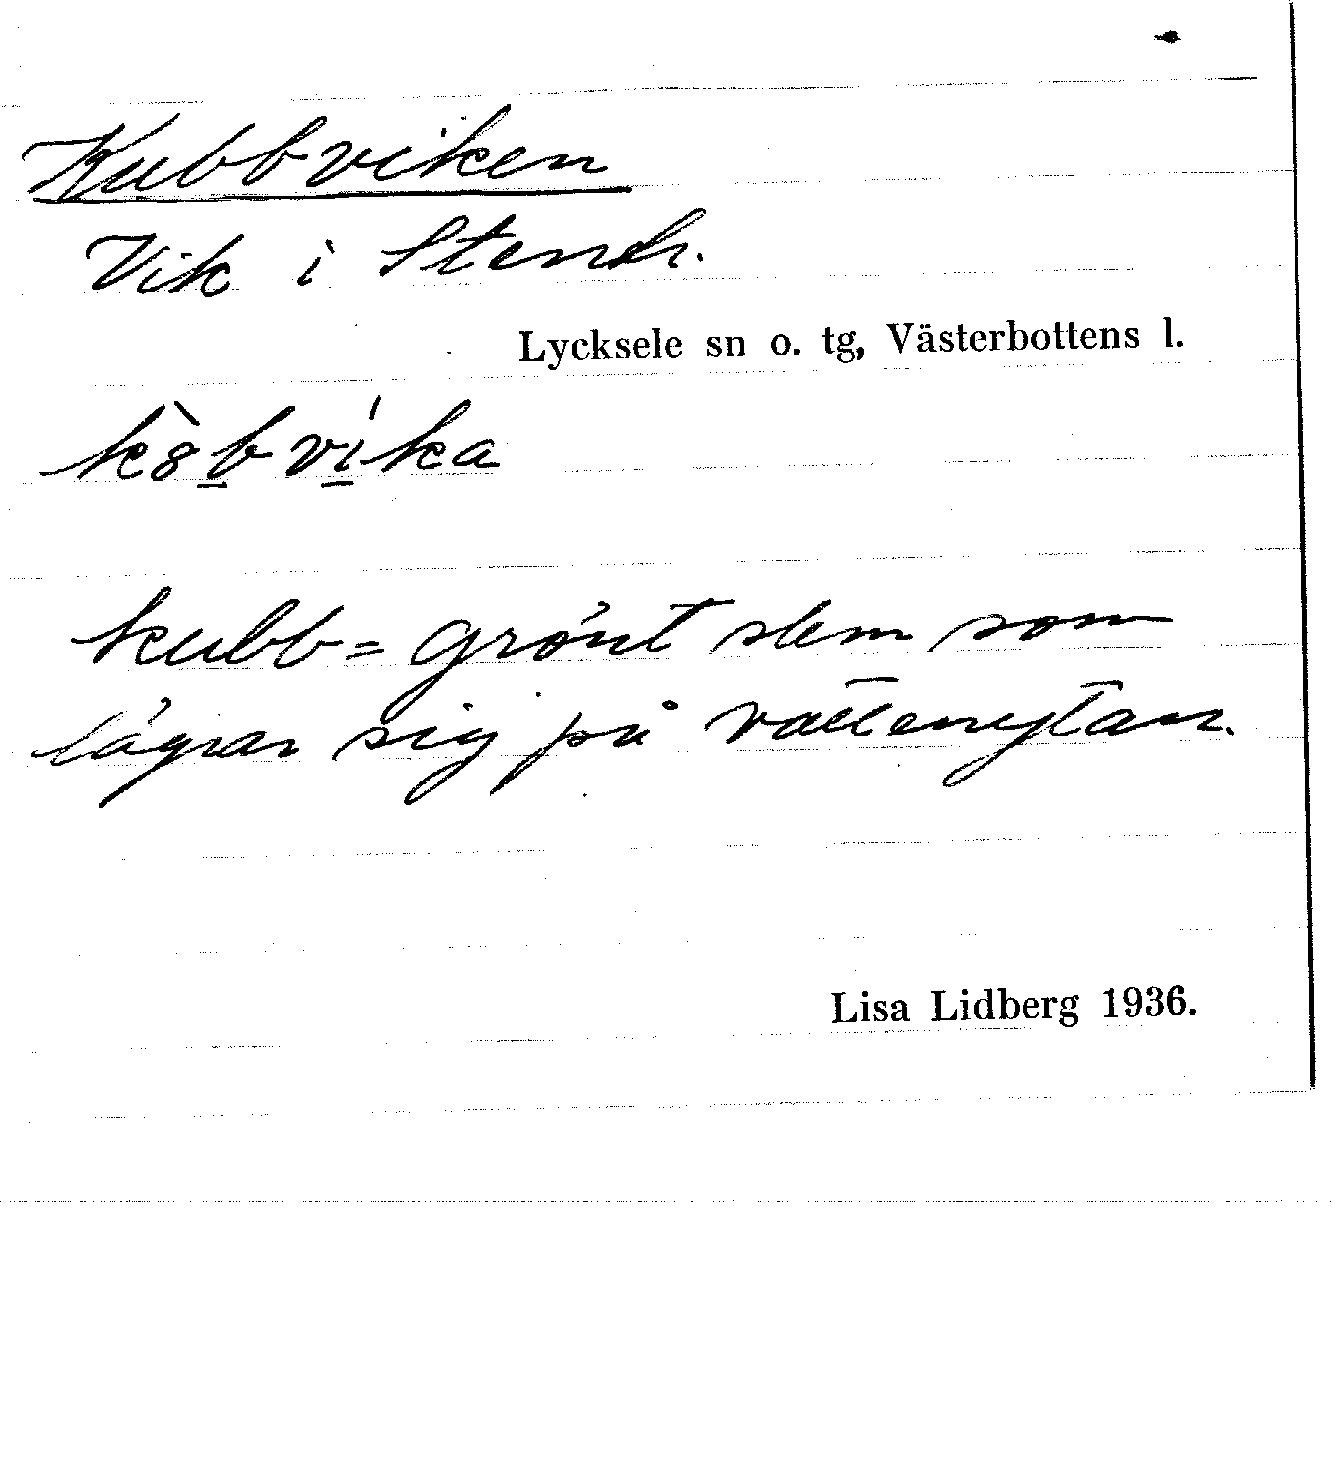 Kubbviken
Vik i
Lycksele sn o. tg, Västerbottens l.
kubb = grönt slem som
lägrar sig på vattenytan.
Lisa Lidberg 1936.